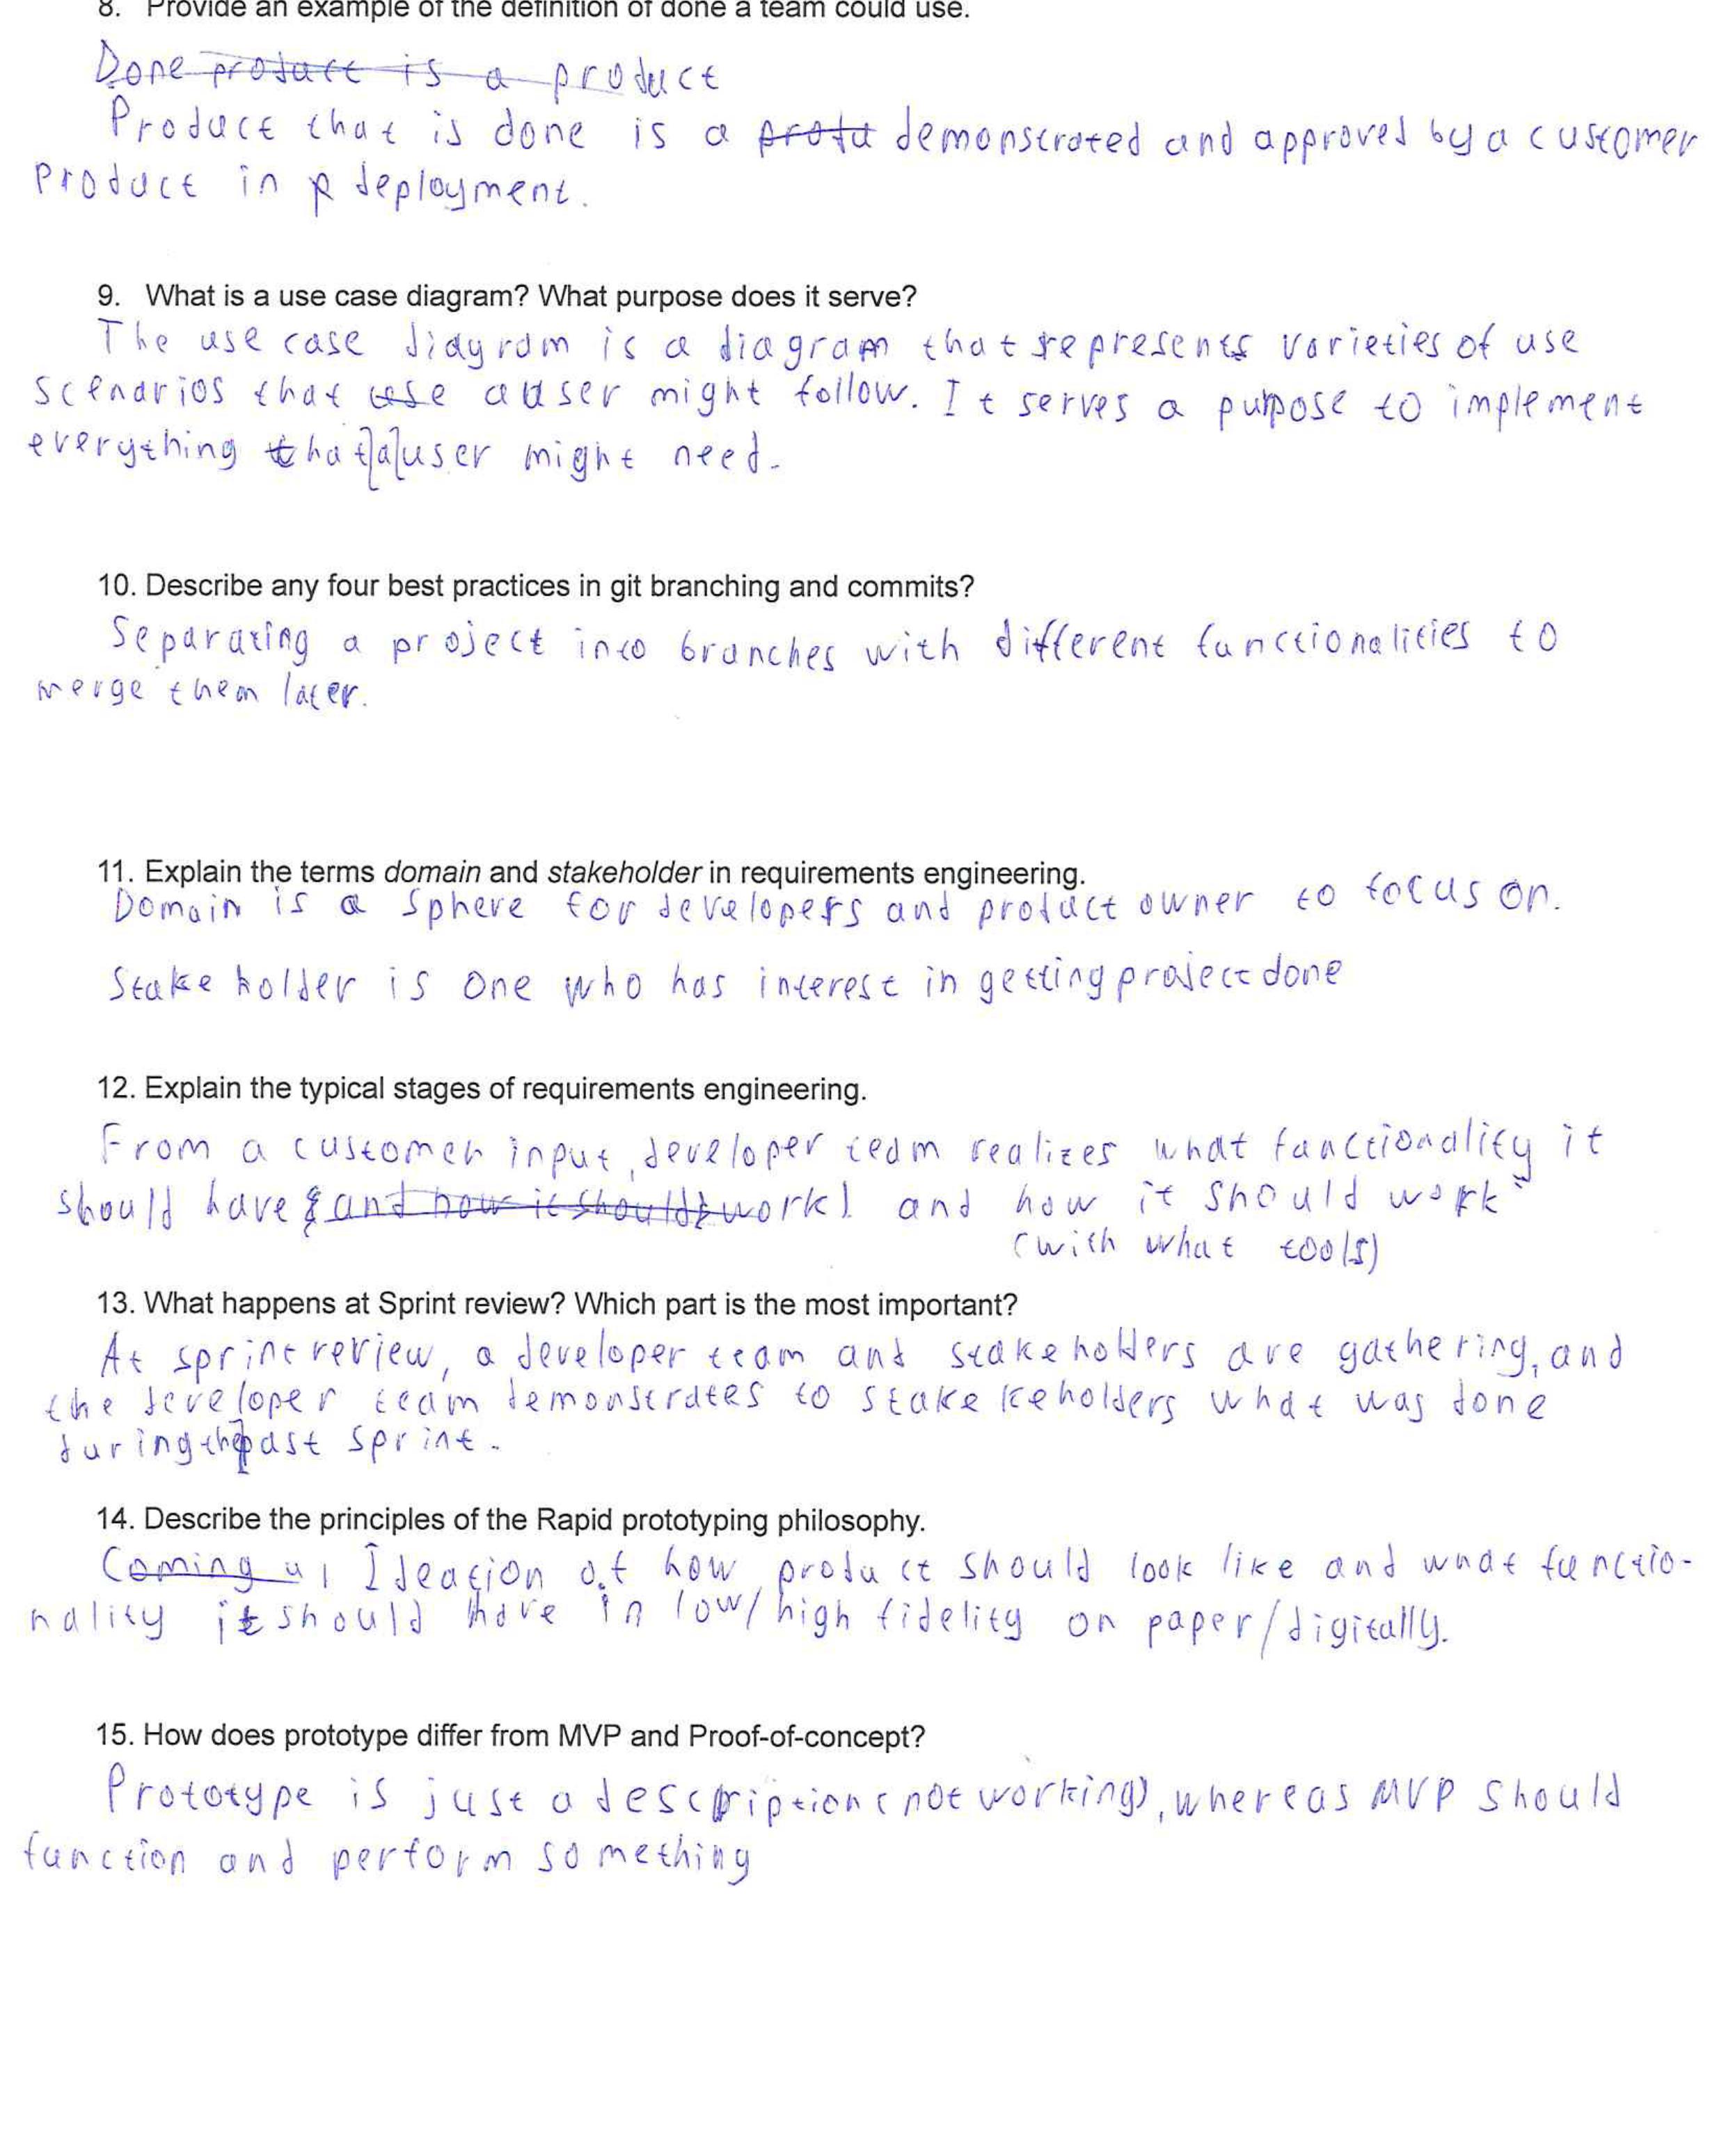 8. Provide an example of the definition of done a team could use.
Done product is a product
Product that is done is a produ demonstrated and approved by a customer
product in p deployment.
9. What is a use case diagram? What purpose does it serve?
The use case diagram is a diagram that represents varieties of use
scenarios that use a user might follow. It serves a purpose to implement
everything that a user might need.
10. Describe any four best practices in git branching and commits?
Separating a project into branches with different functionalities to
merge them later.
11. Explain the terms domain and stakeholder in requirements engineering.
Domain is a sphere for developers and product owner to focus on.
Stake holder is one who has interest in getting project done
12. Explain the typical stages of requirements engineering.
From a customer input, developer team realizes what functionality it
should have & and how it should work) and how it should work
(with what tools)
13. What happens at Sprint review? Which part is the most important?
At sprint review, a developer team and stakeholders are gathering, and
the developer team demonstrates to stake keholders what was done
during the past sprint.
14. Describe the principles of the Rapid prototyping philosophy.
Coming u Ideation of how product should look like and what functio-
nality it should have in low/high fidelity on paper/digitally.
15. How does prototype differ from MVP and Proof-of-concept?
Prototype is just a description (not working), whereas MVP should
function and perform something